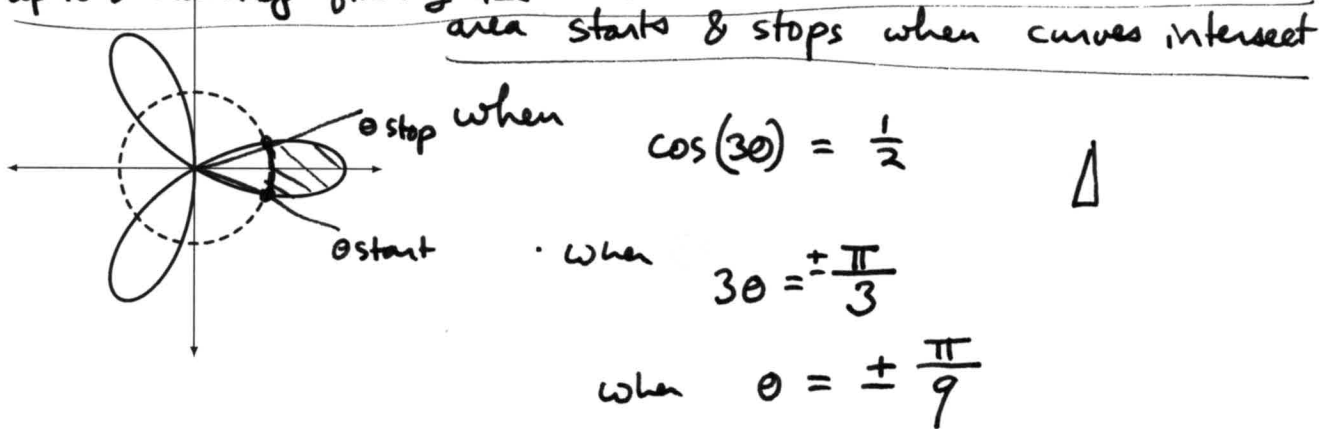 area starts & stops when curves intersect
θ stop
when cos(3θ) = 1/2
θ start
· when 3θ = ± π/3
when θ = ± π/9